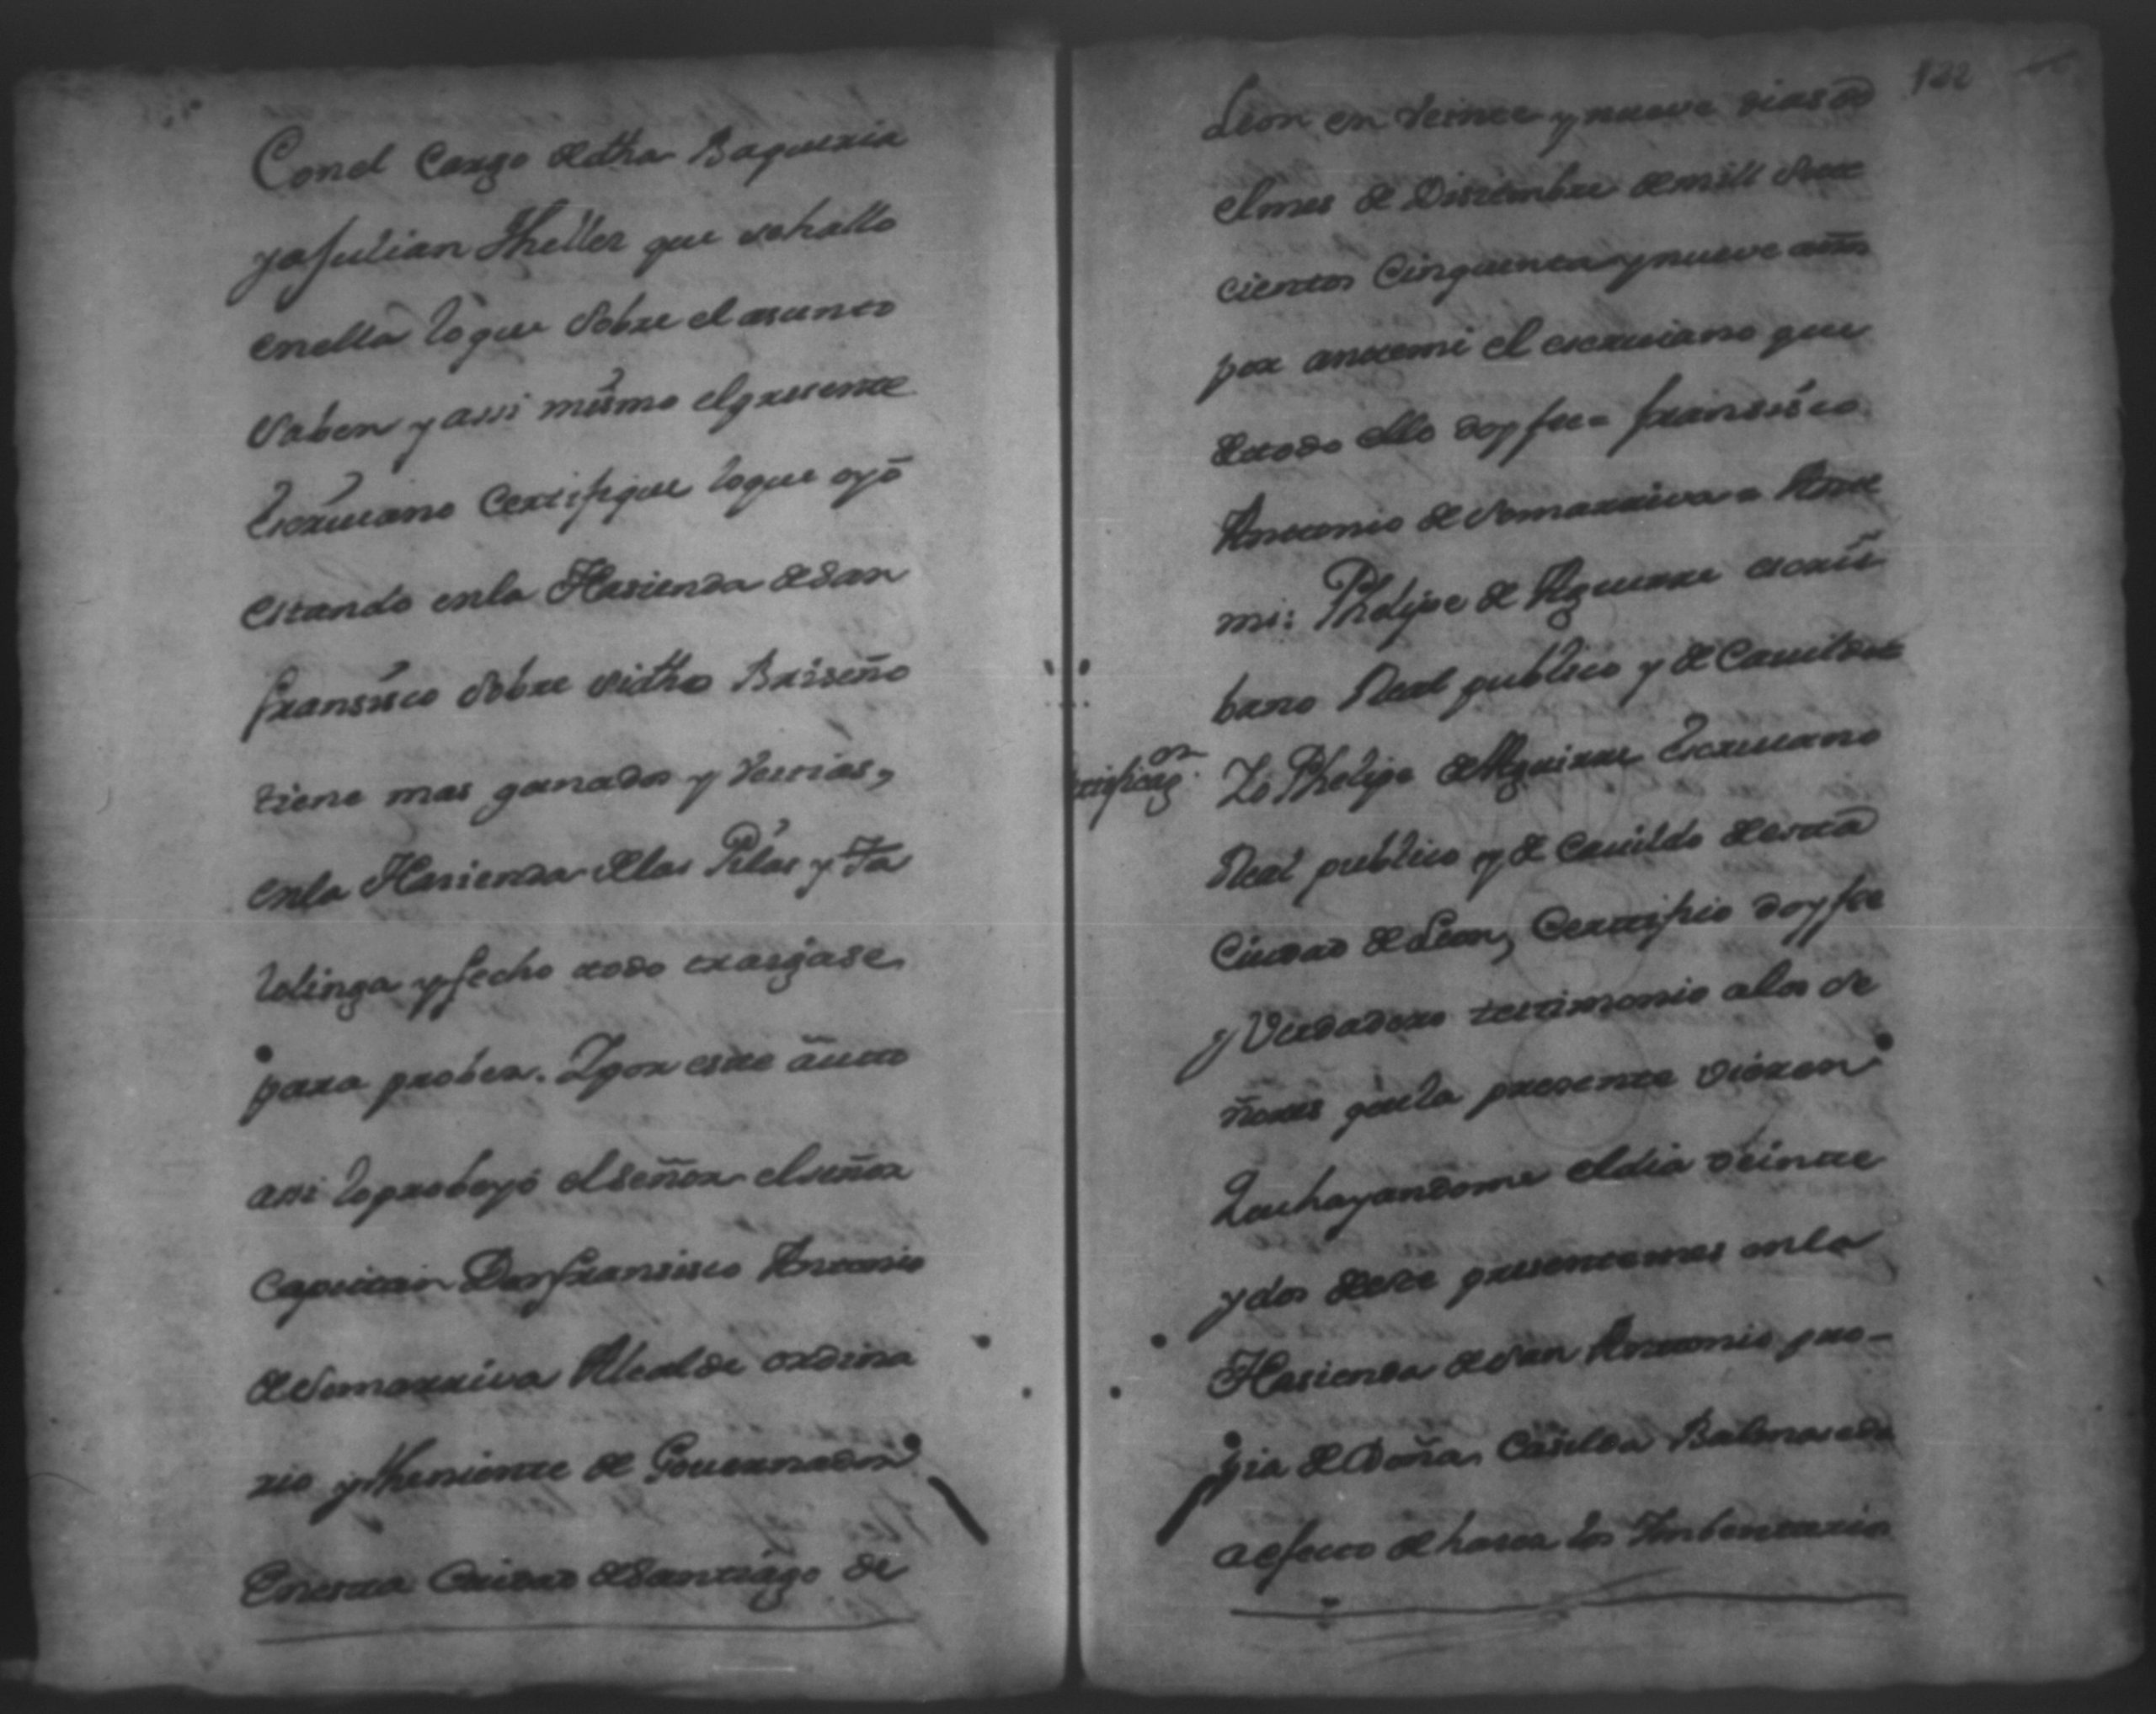 Con el Cargo de dha Baqueria
y a Julian Theller que se hallo
en ella lo que sobre el asunto
saben y assi mismo el presente
Escriuano Certifique lo que oyó
estando en la Hasienda de San
fransisco sobre si dho Briseño
tiene mas ganados y Vestias,
en la Hasienda de las Pilas y Ta
lolinga y fecho todo traigase
para probeer. Y por este auto
assi lo proboyó el señor el señor
Capitan Don fransisco Antonio
de Somarriva Alcalde ordina
rio y theniente de Gouernador
En esta Ciudad de Santiago de
122
Leon en Veinte y nueve dias de
el mes de Disiembre de mill Sete
cientos Cinquenta y nueve años
por ante mi el escriuano que
de todo ello doy fee = fransisco
Antonio de Somarriva = Ante
mi: Phelipe de Aguirre escriu
bano Real publico y de Cauildo
tificaz.on
Yo Phelipe de Aguirre Escriuano
Real publico y de Cauildo de esta
Ciudad de Leon, Certifico doy fee
y Verdadero testimonio a los Se
ñores q.e la presente vieren
Que hayandome el dia veinte
y dos de este presente mes en la
Hasienda de San Antonio pro-
pia de Doña Casilda Balmaseda
a efecto de haser los Imbentarios